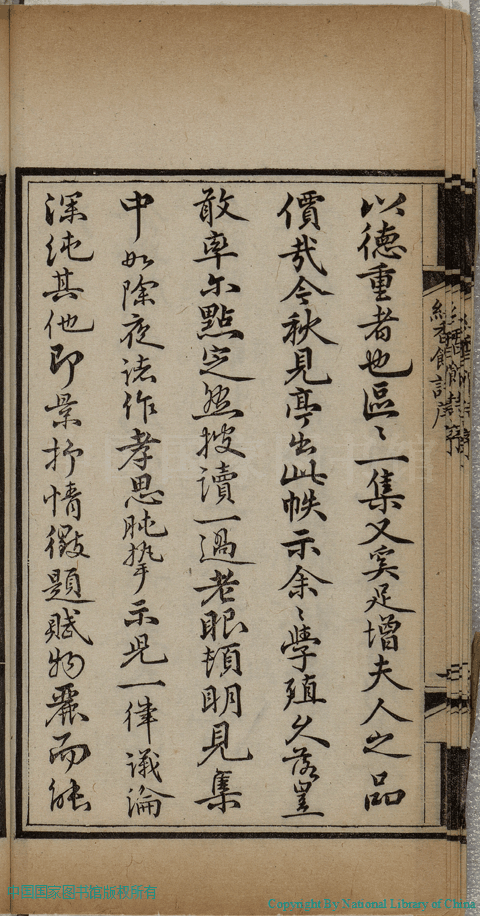 以德重者也區〻一集又奚足增夫人之品
價哉今秋見亭出此帙示余〻學殖久落曷
敢率尔點定然披讀一過老眼頓明見集
中如除夜諸作孝思肫摯示兒一律議論
深純其他即景抒情徵題賦物麗而能
中国国家图书馆版权所有
Copyright By National Library of China